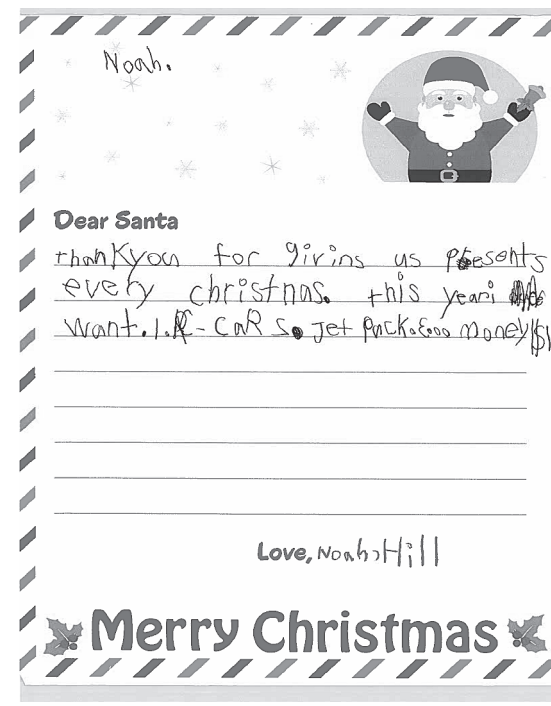 Noah.
Dear Santa
thankyou for giving us presents
every christmas. this year i
want. 1. RC-CaR S. Jet Pack. money $1
Love, Noah Hill
Merry Christmas